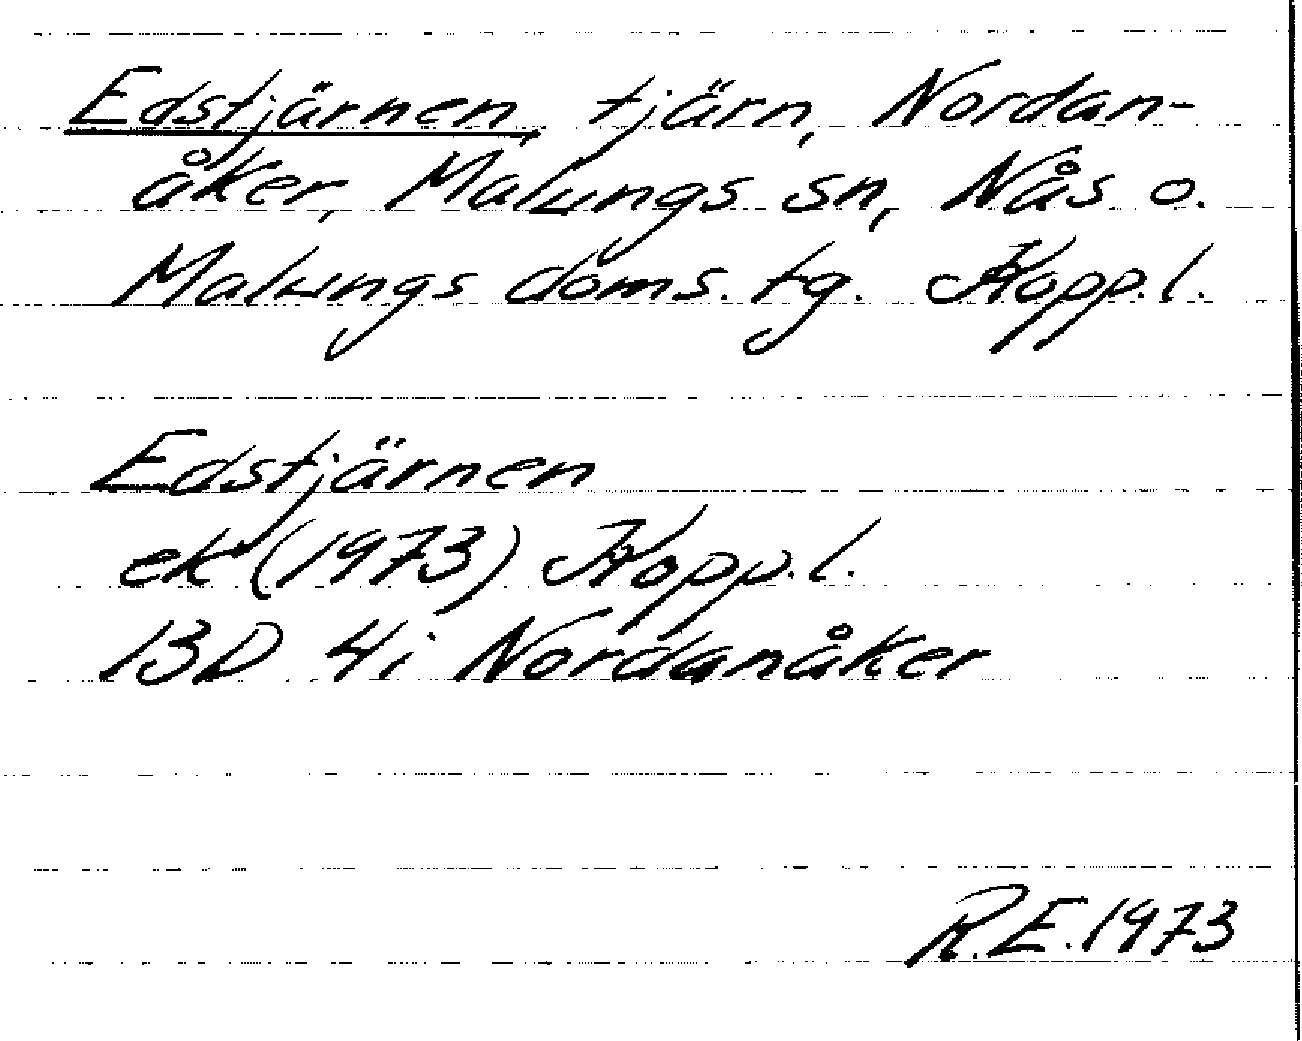 Edstjärnen, tjärn, Nordan-
åker, Malungs sn, Nås o.
Malungs doms. tg. Kopp. l.
Edstjärnen
ek (1973) Kopp. l.
13D 4i Nordanåker
R.E. 1973